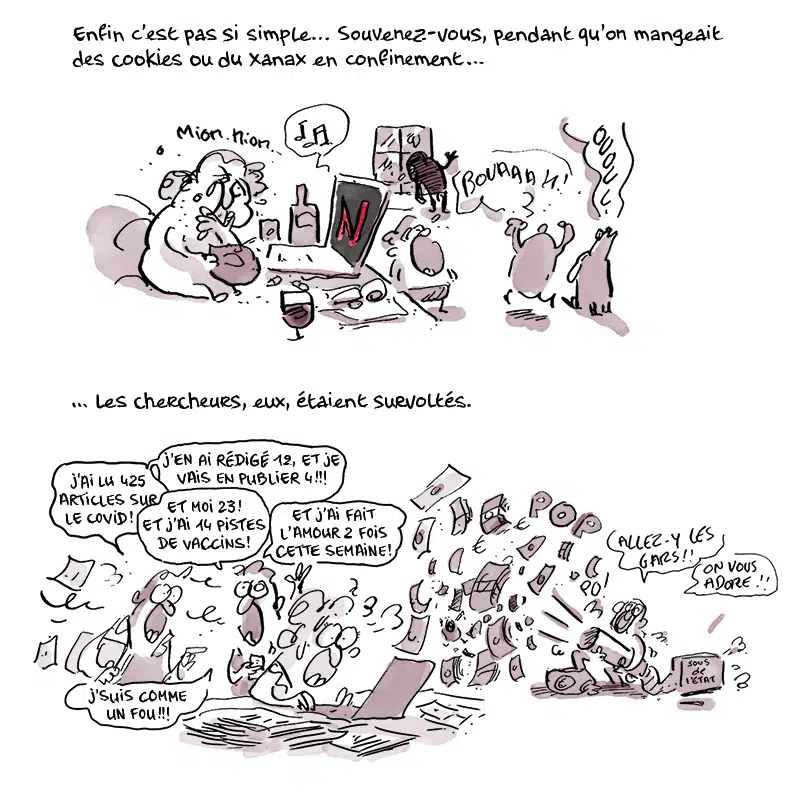 Enfin c'est pas si simple... Souvenez-vous, pendant qu'on mangeait
des cookies ou du Xanax en confinement...
Mion.nion..
N
BOUAAAH!
... Les chercheurs, eux, étaient survoltés.
J'EN AI RÉDIGÉ 12, ET JE
VAIS EN PUBLIER 4!!!
J'AI LU 425
ARTICLES SUR
LE COVID!
ET MOI 23!
ET J'AI 14 PISTES
DE VACCINS!
ET J'AI FAIT
L'AMOUR 2 FOIS
CETTE SEMAINE!
POP
PO!
ALLEZ-Y LES
GARS!!
ON VOUS
ADORE!!
SOUS
de
L'ÉTAT
J'SUIS COMME
UN FOU!!!